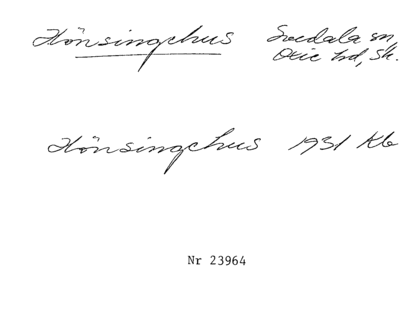 Hönsingehus Svedala sn,
Oxie hd, Sk.
Hönsingehus 1931 Kb
Nr 23964